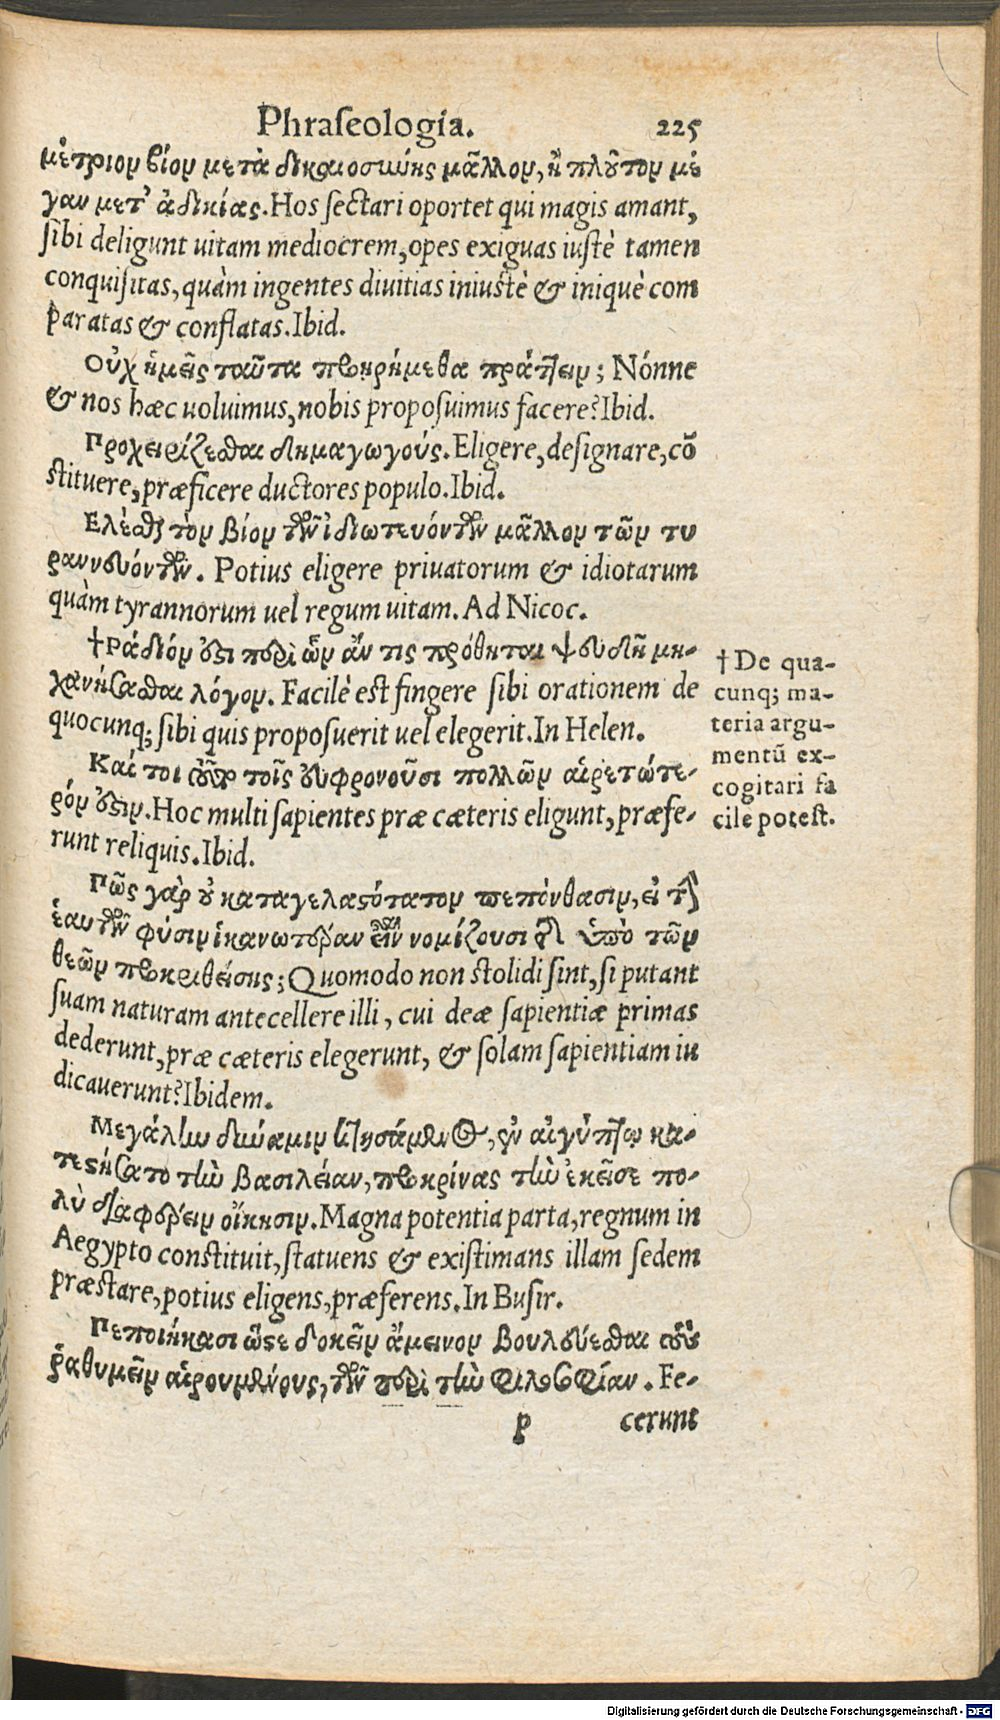 Phraſeologia. 225
μέτριον βίον μετὰ δικαιοσύνης μᾶλλον, ἢ πλοῦτον μέ
γαν μετ' ἀδικίας. Hos ſectari oportet qui magis amant,
ſibi deligunt uitam mediocrem, opes exiguas iuſtè tamen
conquiſitas, quàm ingentes diuitias iniuſtè & iniquè com
paratas & conflatas. Ibid.
Οὐχ ἡμεῖς ταῦτα προῃρήμεθα πράττειν; Nónne
& nos hæc uoluimus, nobis propoſuimus facere? Ibid.
Προχειρίζεσθαι δημαγωγούς. Eligere, deſignare, cō
ſtituere, præficere ductores populo. Ibid.
Ελέσθαι τὸν βίον τῶν ἰδιωτευόντων μᾶλλον τῶν τυ
ραννευόντων. Potius eligere priuatorum & idiotarum
quàm tyrannorum uel regum uitam. Ad Nicoc.
†Ράδιόν ἐστι περὶ ὧν ἄν τις πρόθηται ψευδῆ μη-
χανήσασθαι λόγον. Facilè eſt fingere ſibi orationem de
quocunq; ſibi quis propoſuerit uel elegerit. In Helen.
† De qua-
cunq; ma-
teria argu-
mentū ex-
cogitari fa
cile poteſt.
Καί τοι σὺν τοῖς εὐφρονοῦσι πολλῶν αἱρετώτε-
ρόν ἐστιν. Hoc multi ſapientes præ cæteris eligunt, præfe-
runt reliquis. Ibid.
Πῶς γὰρ οὐ καταγελαστότατον πεπόνθασιν, εἰ τὴν
ἑαυτῶν φύσιν ἱκανωτέραν εἶναι νομίζουσι τῆς ὑπὸ τῶν
θεῶν προκριθείσης; Quomodo non ſtolidi ſint, ſi putant
ſuam naturam antecellere illi, cui deæ ſapientiæ primas
dederunt, præ cæteris elegerunt, & ſolam ſapientiam iu
dicauerunt? Ibidem.
Μεγάλην δύναμιν κτησάμενος, ἐν αἰγύπτῳ κα-
τεστήσατο τὴν βασιλείαν, προκρίνας τὴν ἐκεῖσε πο-
λὺ διαφέρειν οἴκησιν. Magna potentia parta, regnum in
Aegypto conſtituit, ſtatuens & exiſtimans illam ſedem
præſtare, potius eligens, præferens. In Buſir.
Πεποιήκασι ὥστε δοκεῖν ἄμεινον βουλεύεσθαι τοὺς
ῥαθυμεῖν αἱρουμένους, τῶν περὶ τὴν φιλοσοφίαν. Fe-
p cerunt
Digitalisierung gefördert durch die Deutsche Forschungsgemeinschaft - DFG